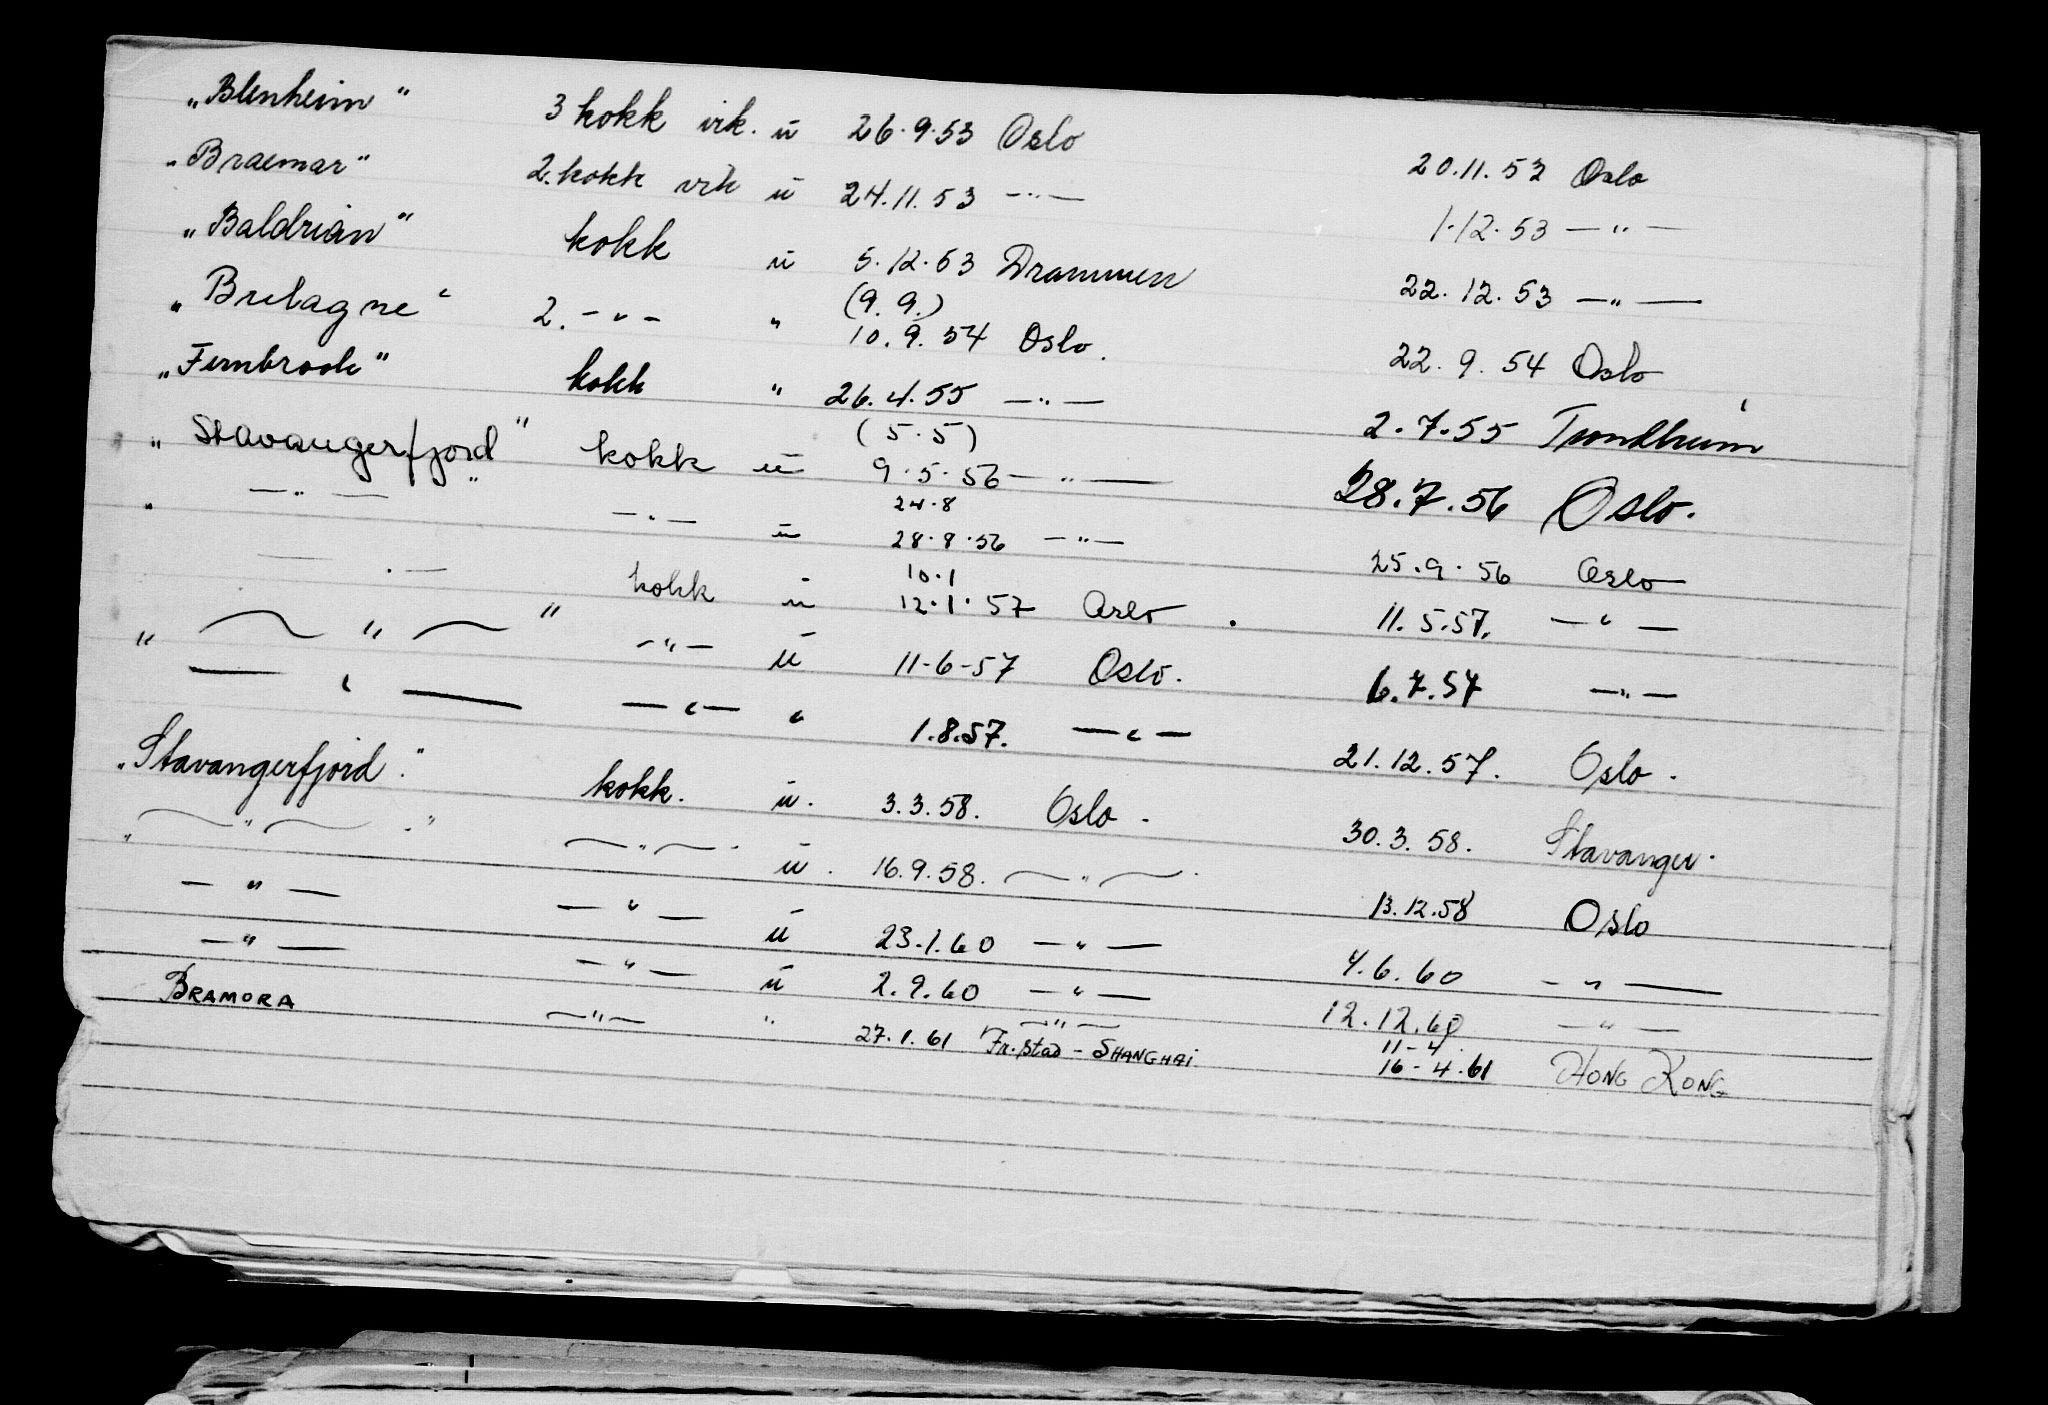 „Blenheim" 3 kokk vik. u 26.9.53 Oslo 20.11.53 Oslo
„Braemar" 2. kokk vik u 24.11.53 —"— 1.12.53 —"—
„Baldrian" kokk u 5.12.53 Drammen 22.12.53 —"—
(9.9.)
„Bretagne" 2. —"— " 10.9.54 Oslo. 22.9.54 Oslo
„Fernbrook" kokk " 26.4.55 —"— 2.7.55 Trondheim
(5.5)
„Stavangerfjord" kokk u 9.5.56 —"— 28.7.56 Oslo.
24.8
" —"— " —"— u 28.8.56 —"— 25.9.56 Oslo
10.1
—"— kokk u 12.1.57 Oslo. 11.5.57. —"—
" —"— " —"— u 11-6-57 Oslo. 6.7.57 —"—
—"— —"— " 1.8.57. —"— 21.12.57. Oslo.
„Stavangerfjord." kokk. u. 3.3.58. Oslo. 30.3.58. Stavanger.
„ —"— ." —"—. u. 16.9.58. —"—. 13.12.58 Oslo
—"— —"— u 23.1.60 —"— 4.6.60 —"—
—"— —"— u 2.9.60 —"— 12.12.60 —"—
—"— 11-4
BRAMORA —"— " 27.1.61 Fr.stad - SHANGHAI. 16-4.61 HONG KONG